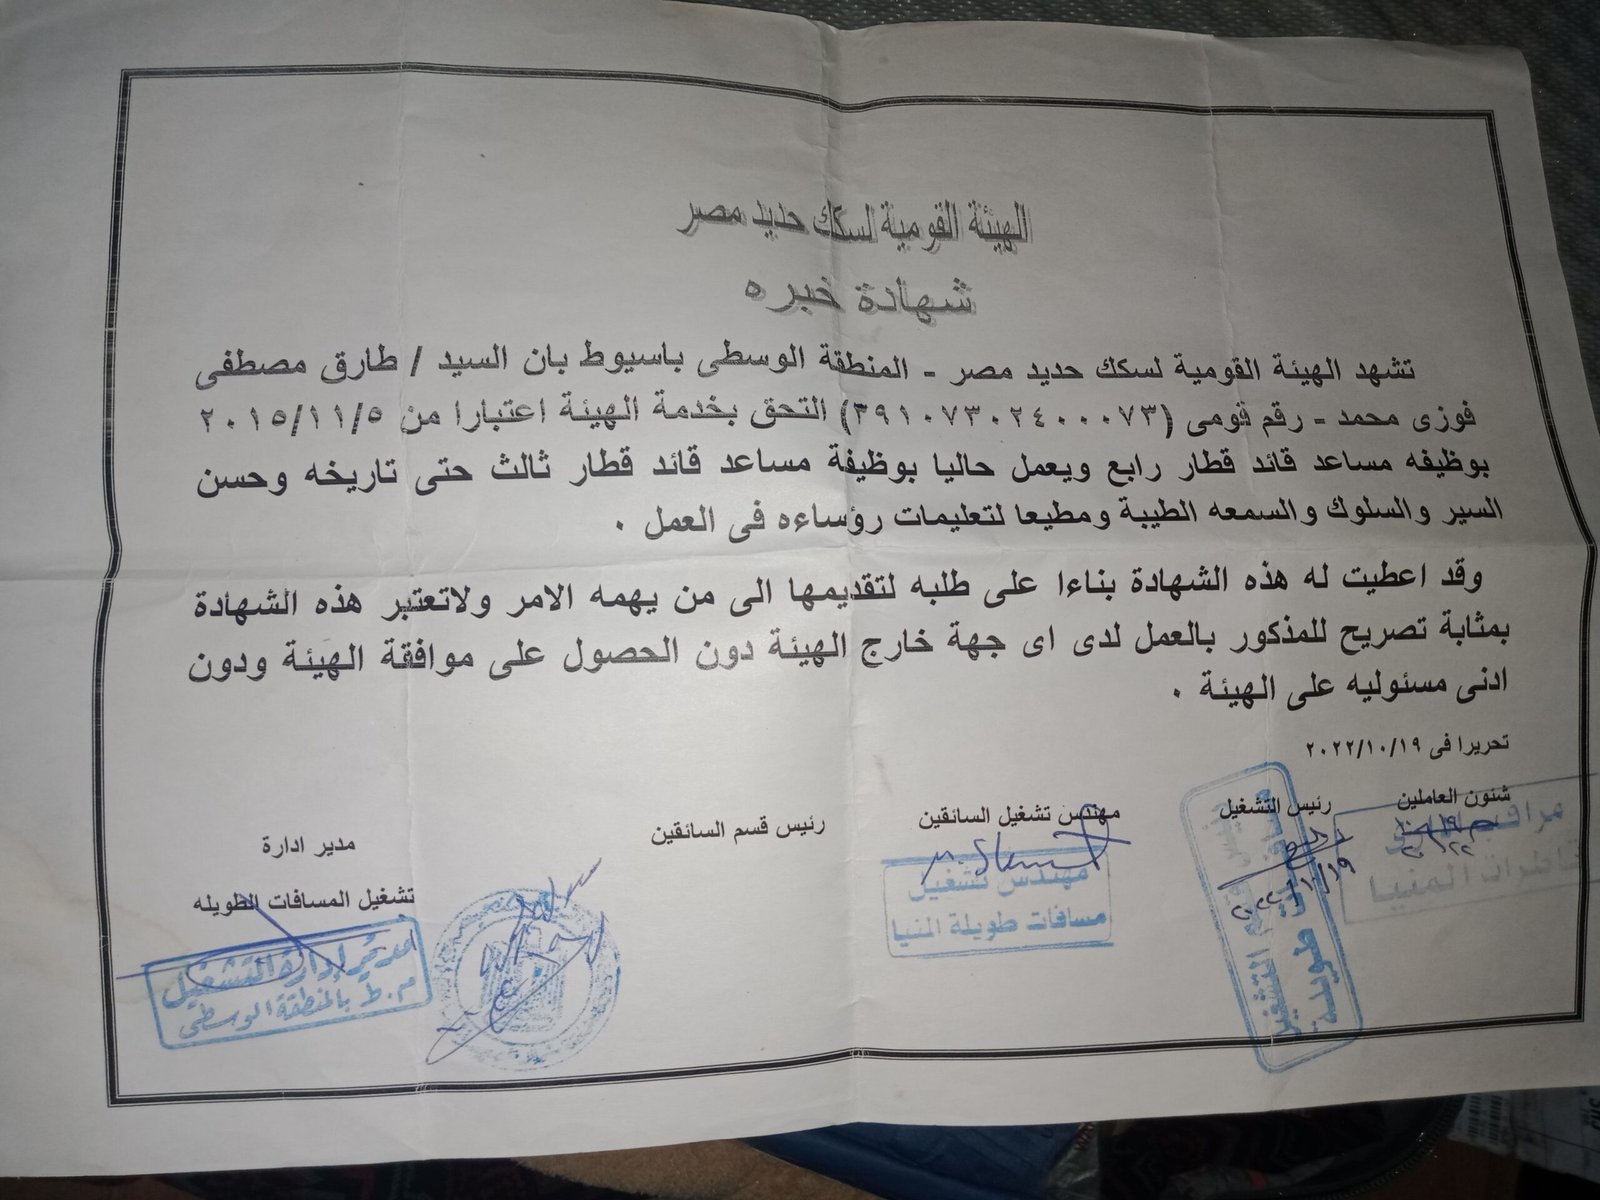 الهيئة القومية لسكك حديد مصر
شهادة خبره
تشهد الهيئة القومية لسكك حديد مصر - المنطقة الوسطى باسيوط بان السيد / طارق مصطفى
فوزى محمد - رقم قومى (٢٩١٠٧٣٠٢٤٠٠٠٧٣) التحق بخدمة الهيئة اعتبارا من ٢٠١٥/١١/٥
بوظيفه مساعد قائد قطار رابع ويعمل حاليا بوظيفة مساعد قائد قطار ثالث حتى تاريخه وحسن
السير والسلوك والسمعه الطيبة ومطيعا لتعليمات رؤساءه فى العمل ٠
وقد اعطيت له هذه الشهادة بناءا على طلبه لتقديمها الى من يهمه الامر ولاتعتبر هذه الشهادة
بمثابة تصريح للمذكور بالعمل لدى اى جهة خارج الهيئة دون الحصول على موافقة الهيئة ودون
ادنى مسئوليه على الهيئة ٠
تحريرا فى ٢٠٢٢/١٠/١٩
شئون العاملين
رئيس التشغيل
مهندس تشغيل السائقين
رئيس قسم السائقين
مدير ادارة
تشغيل المسافات الطويله
قاطرات المنيا
مهندس تشغيل
مسافات طويلة المنيا
مدير إدارة التشغيل
م.ط بالمنطقة الوسطى